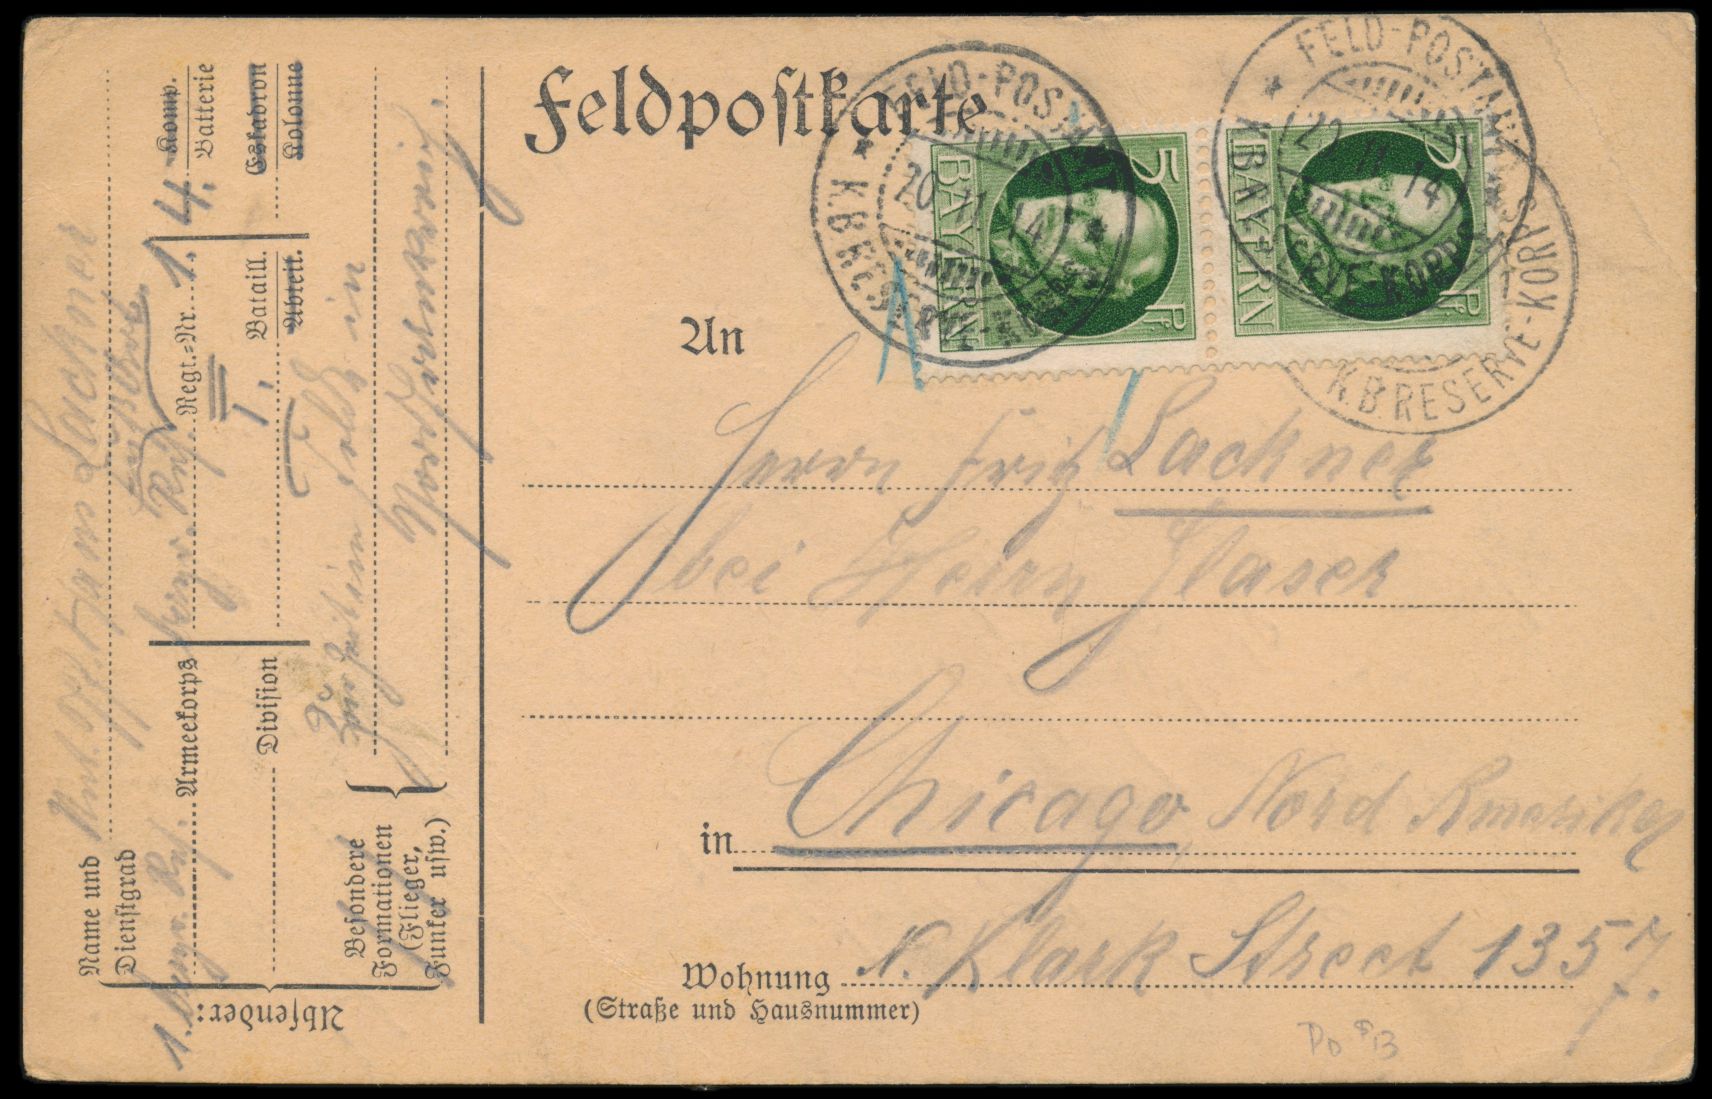 Feldpostkarte
FELD-POSTAMT
20 11 14
K.B. RESERVE-KORPS
5 BAYERN Pf
5 BAYERN Pf
FELD-POSTAMT
20 11 14
K.B. RESERVE-KORPS
An
Herrn Fritz Lackner
bei Herrn Glaser
in Chicago Nord Amerika
Wohnung N. Klark Street 1357.
(Straße und Hausnummer)
Do $13
Absender:
Name und
Dienstgrad
Hans Lackner
1. Armeekorps
Division
Regt.-Nr. 1.
I. Bataill.
Abteil.
4. Komp.
Batterie
Eskadron
Kolonne
Besondere
Formationen
(Flieger,
Funker usw.)
Felde in